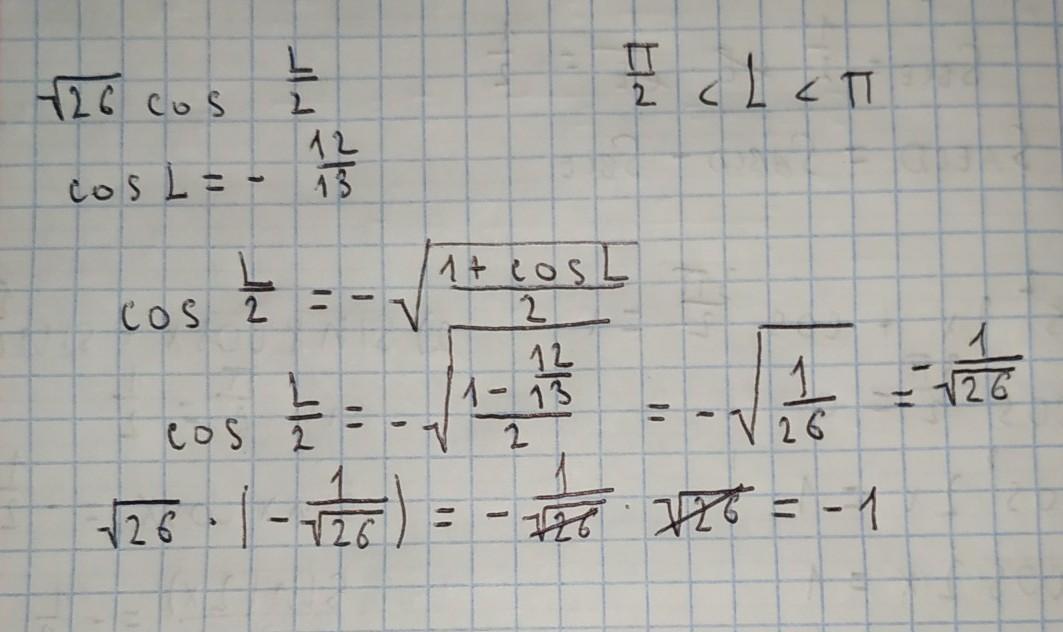 √26 cos L/2    π/2 < L < π
cos L = - 12/13
cos L/2 = - √((1 + cos L)/2)
cos L/2 = - √((1 - 12/13)/2) = - √(1/26) = - 1/√26
√26 · (- 1/√26) = - 1/√26 · √26 = - 1